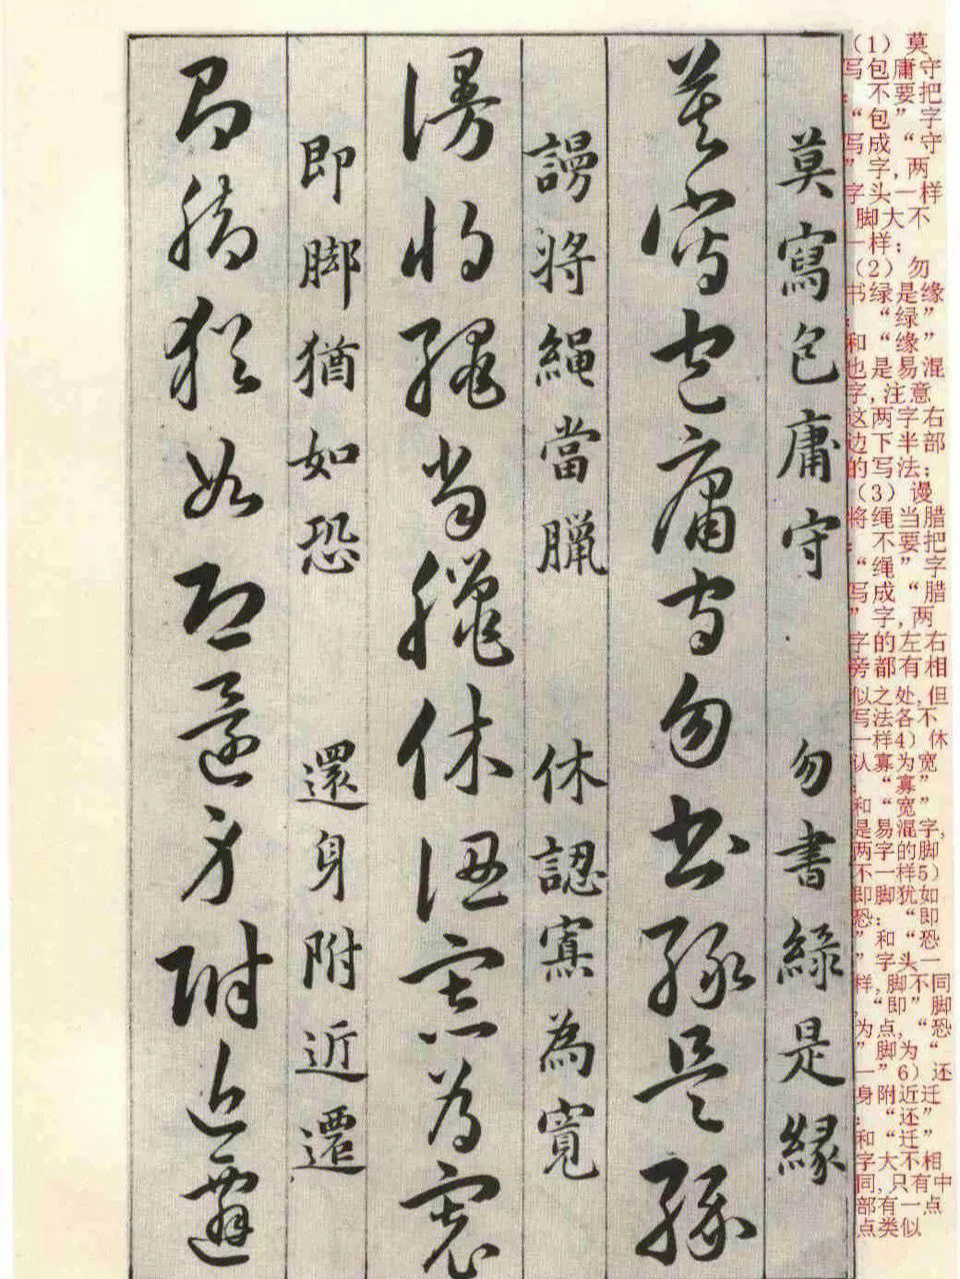 莫寫包庸守 勿書綠是緣
莫寫包庸守勿書綠是緣
謾將繩當臘 休認寡為寬
謾將繩當臘休認寡為寬
即脚猶如恐 還身附近遷
即脚猶如恐還身附近遷
（1）莫
写包庸守
：不要把
“包”字
写成“守
”字，两
字头一样
脚大不
一样；
（2）勿
书绿是缘
：“绿”
和“缘”
也是易混
字，注意
这两字右
边下半部
的写法；
（3）谩
将绳当腊
：不要把
“绳”字
写成“腊
”字，两
字的左右
旁都有相
似之处，但
写法各不
一样4）休
认寡为宽
：“寡”
和“宽”
是易混字，
两字的脚
不一样5）
即脚犹如
恐：“即
”和“恐
”字头一
样，脚不同
，“即”脚
为点，“恐
”脚为“
一”6）还
身附近迁
：“还”
和“迁”
字大不相
同，只有中
部有一点
点类似